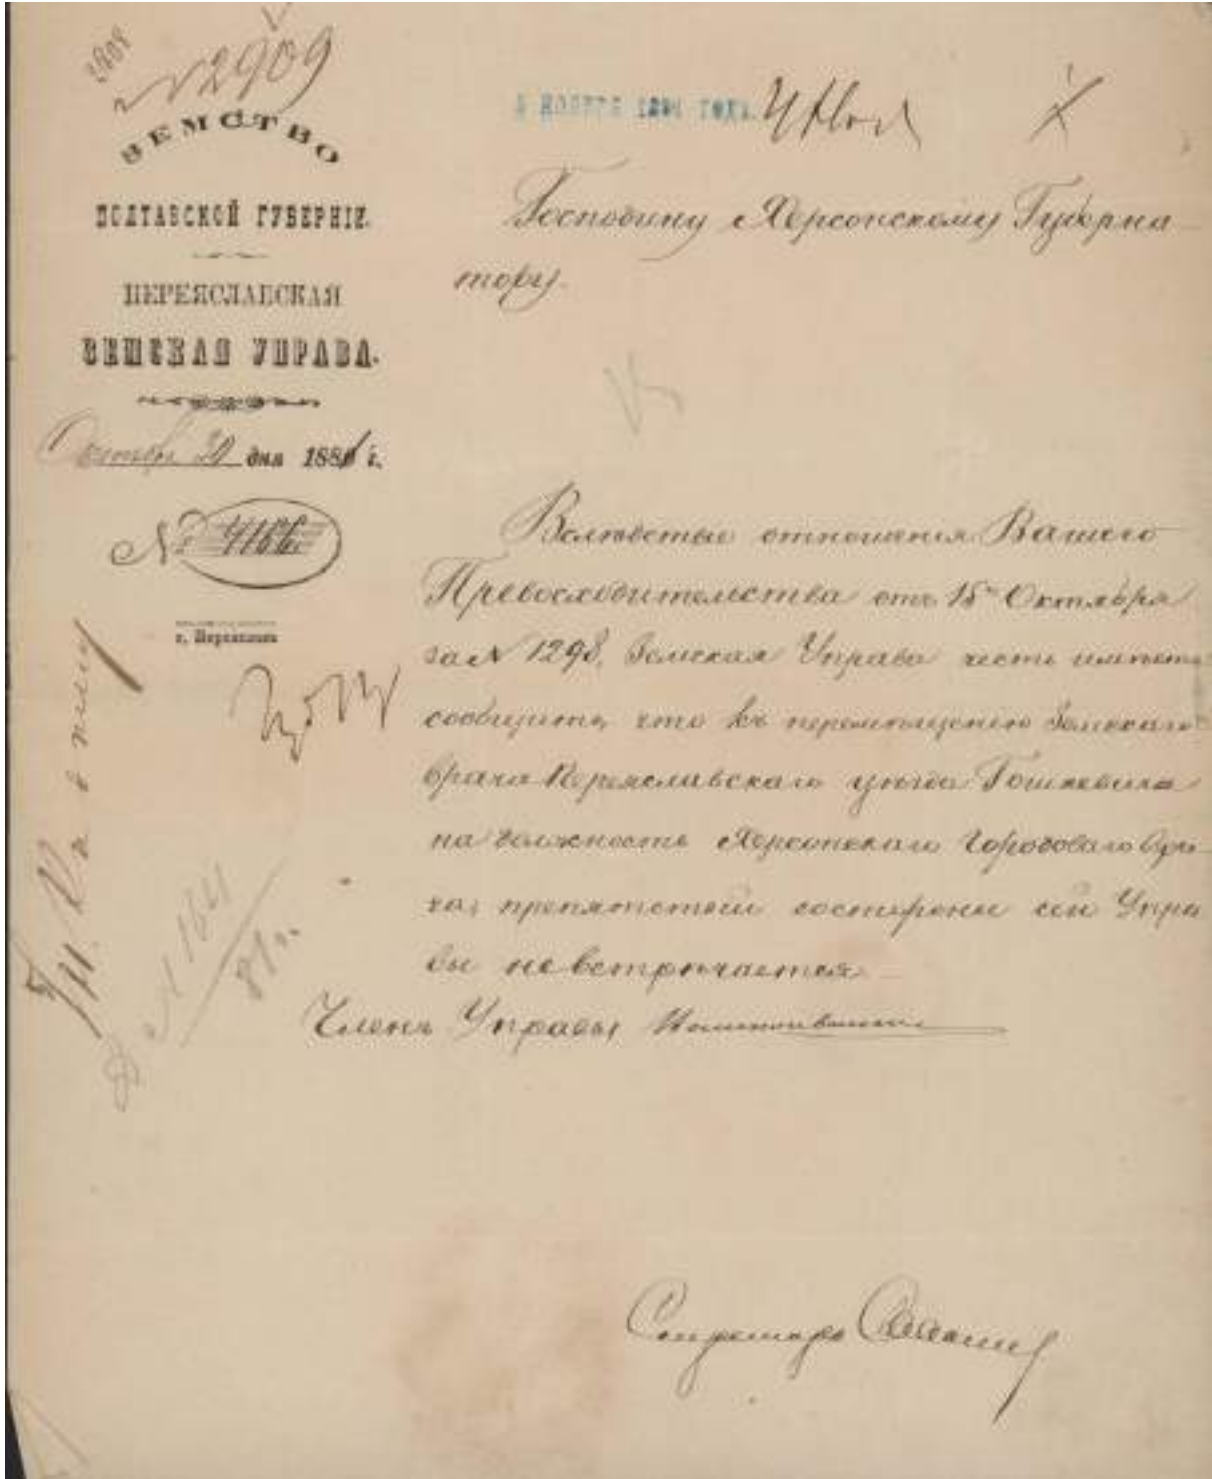 № 2909
ЗЕМСТВО
ПОЛТАВСКОЙ ГУБЕРНІИ.
ПЕРЕЯСЛАВСКАЯ
ЗЕМСКАЯ УПРАВА.
Октября 30 дня 1881 г.
№ 4166
г. Переяславъ
Господину Херсонскому Губерна-
тору.
Вслѣдствіе отношенія Вашего
Превосходительства отъ 15го Октября
за № 1298, Земская Управа честь имѣетъ
сообщить, что къ перемѣщенію Земскаго
врача Переяславскаго уѣзда Гошкевича
на должность Херсонскаго Городоваго вра-
ча, препятствій состороны сей Упра
вы невстрѣчается.
Членъ Управы
Секретарь
Д № 164
81 г.